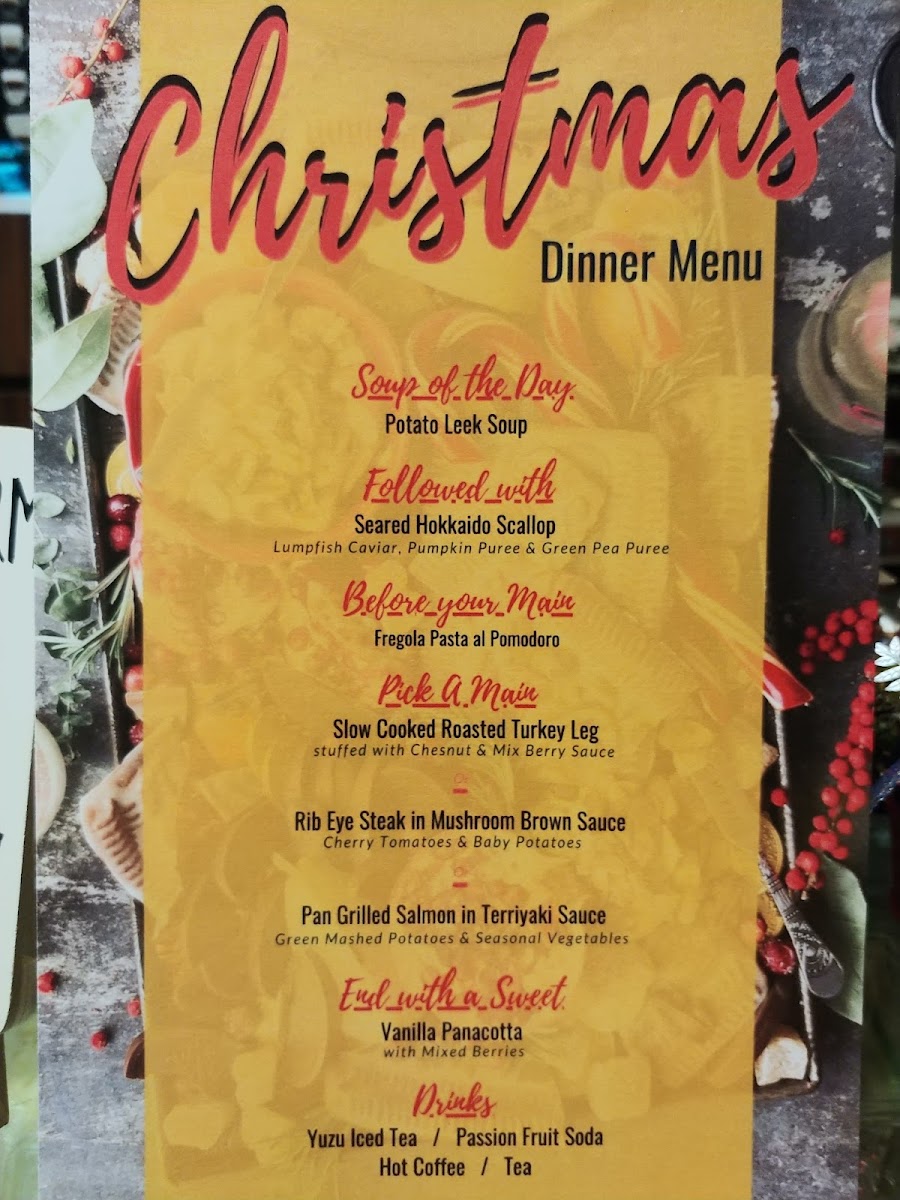 Christmas
Dinner Menu
Soup of the Day
Potato Leek Soup
Followed with
Seared Hokkaido Scallop
Lumpfish Caviar, Pumpkin Puree & Green Pea Puree
Before your Main
Fregola Pasta al Pomodoro
Pick A Main
Slow Cooked Roasted Turkey Leg
stuffed with Chesnut & Mix Berry Sauce
Or
Rib Eye Steak in Mushroom Brown Sauce
Cherry Tomatoes & Baby Potatoes
Or
Pan Grilled Salmon in Terriyaki Sauce
Green Mashed Potatoes & Seasonal Vegetables
End with a Sweet
Vanilla Panacotta
with Mixed Berries
Drinks
Yuzu Iced Tea / Passion Fruit Soda
Hot Coffee / Tea